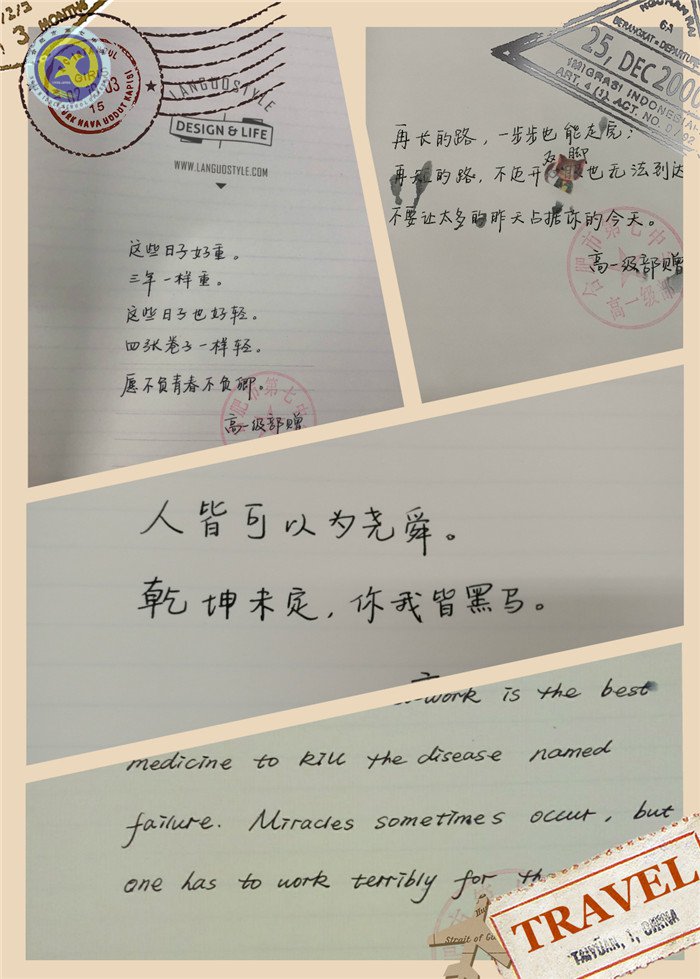 3 MONTHS
LANGUOSTYLE
DESIGN & LIFE
WWW.LANGUOSTYLE.COM
这些日子好重。
三年一样重。
这些日子也好轻。
四张卷子一样轻。
愿不负青春不负卿。
高一级部赠
25, DEC 200
IMIGRASI INDONESIA
再长的路，一步步也能走完；
再短的路，不迈开双脚也无法到达
不要让太多的昨天占据你的今天。
高一级部赠
合肥市第七中
高一级部
人皆可以为尧舜。
乾坤未定，你我皆黑马。
work is the best
medicine to kill the disease named
failure. Miracles sometimes occur, but
one has to work terribly for th
TRAVEL
TAIYUAN, 1, CHINA